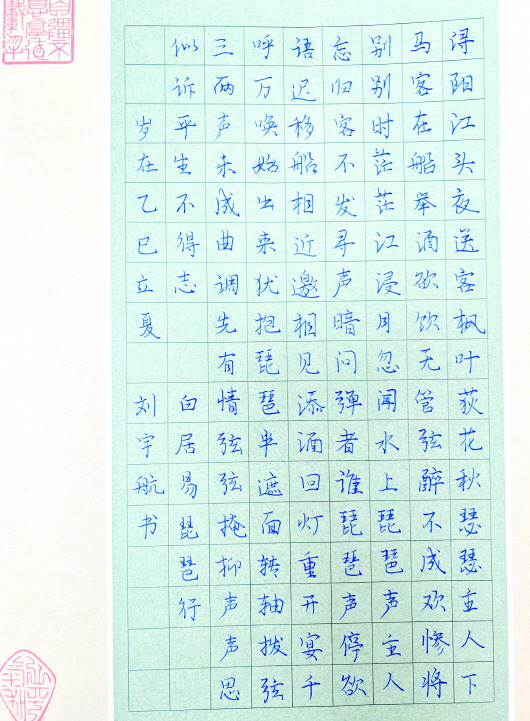 浔阳江头夜送客枫叶荻花秋瑟瑟主人下
马客在船举酒欲饮无管弦醉不成欢惨将
别别时茫茫江浸月忽闻水上琵琶声主人
忘归客不发寻声暗问弹者谁琵琶声停欲
语迟移船相近邀相见添酒回灯重开宴千
呼万唤始出来犹抱琵琶半遮面转轴拨弦
三两声未成曲调先有情弦弦掩抑声声思
似诉平生不得志 白居易琵琶行
岁在乙巳立夏 刘宇航书